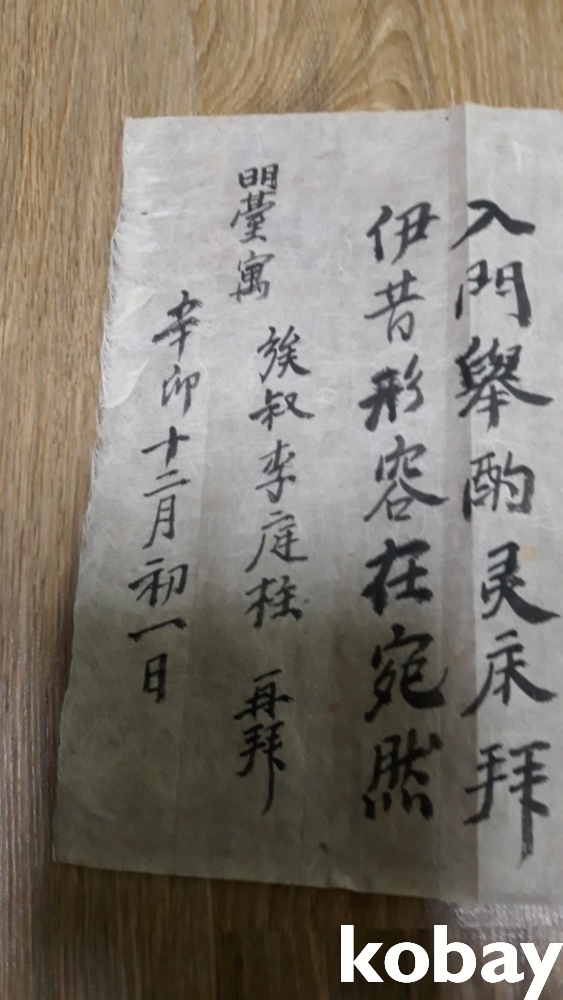 入門舉酌灵床拜
伊昔形容在宛然
明臺寓 族叔李庭柱 再拜
辛卯十二月初一日
kobay